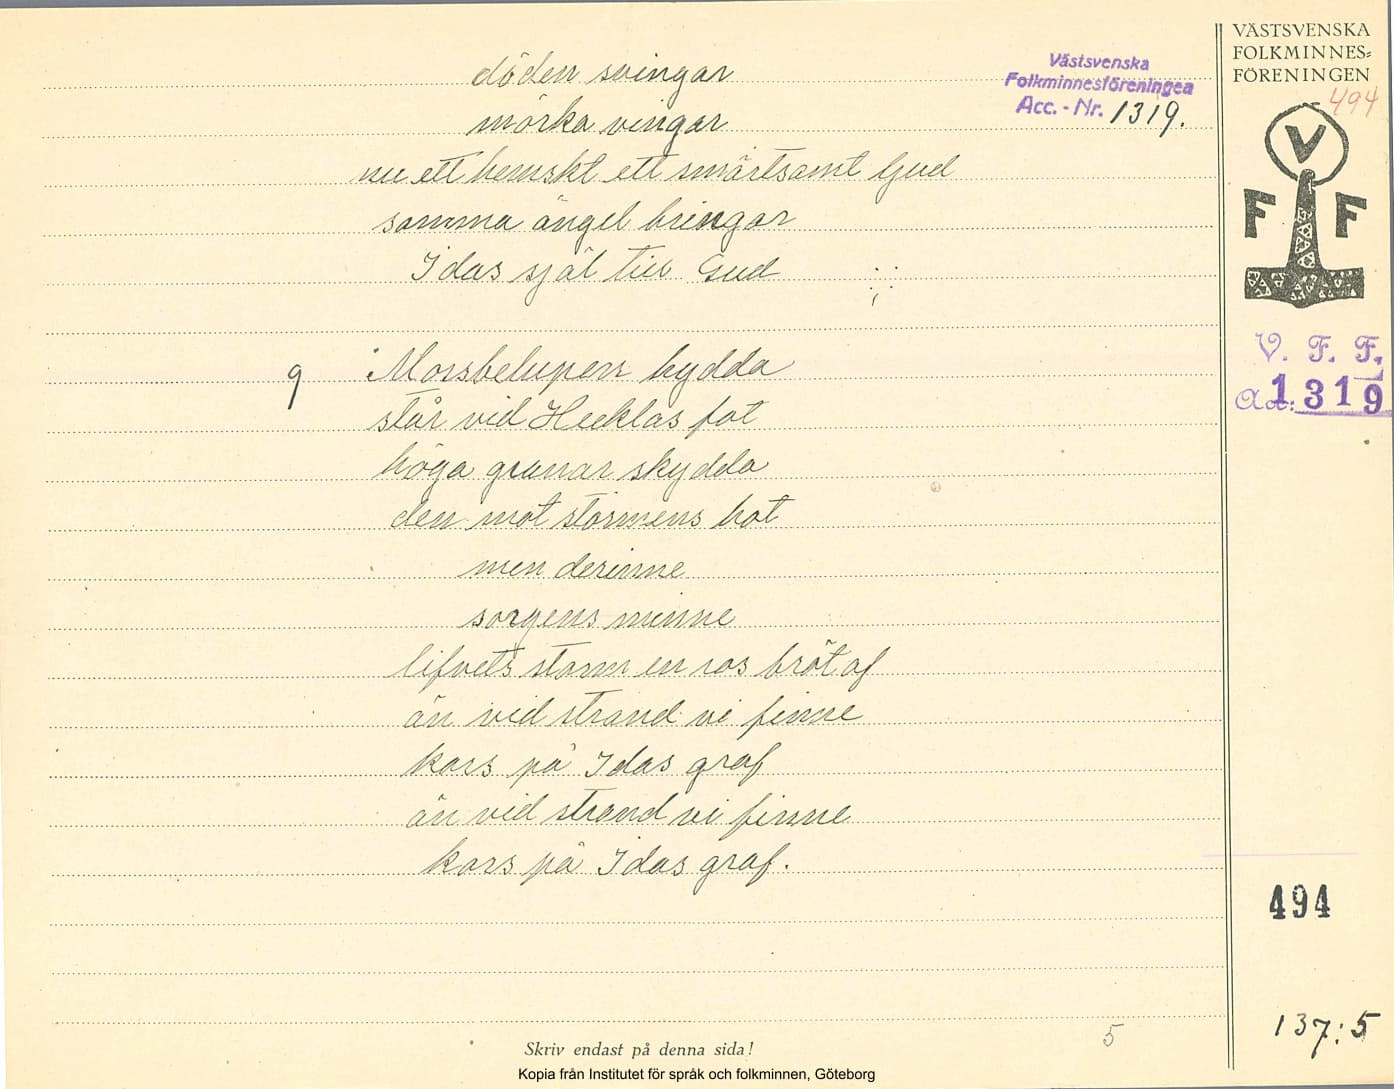 döden svingar
mörka vingar
nu ett hemskt ett smärtsamt ljud
samma ängel bringar
Idas själ till Gud
9 Mossbelupen hydda
står vid Hecklas fot
höga granar skydda
den mot stormens hot
men derinne
sorgens minne
lifvets storm en ros bröt af
än vid strand vi finne
kors på Idas graf
än vid strand vi finne
kors på Idas graf.
Västsvenska
Folkminnesföreningen
Acc. - Nr. 1319.
VÄSTSVENSKA
FOLKMINNES=
FÖRENINGEN
494
V
F F
V. F. F.
Acc: 1319
494
137:5
5
Skriv endast på denna sida!
Kopia från Institutet för språk och folkminnen, Göteborg